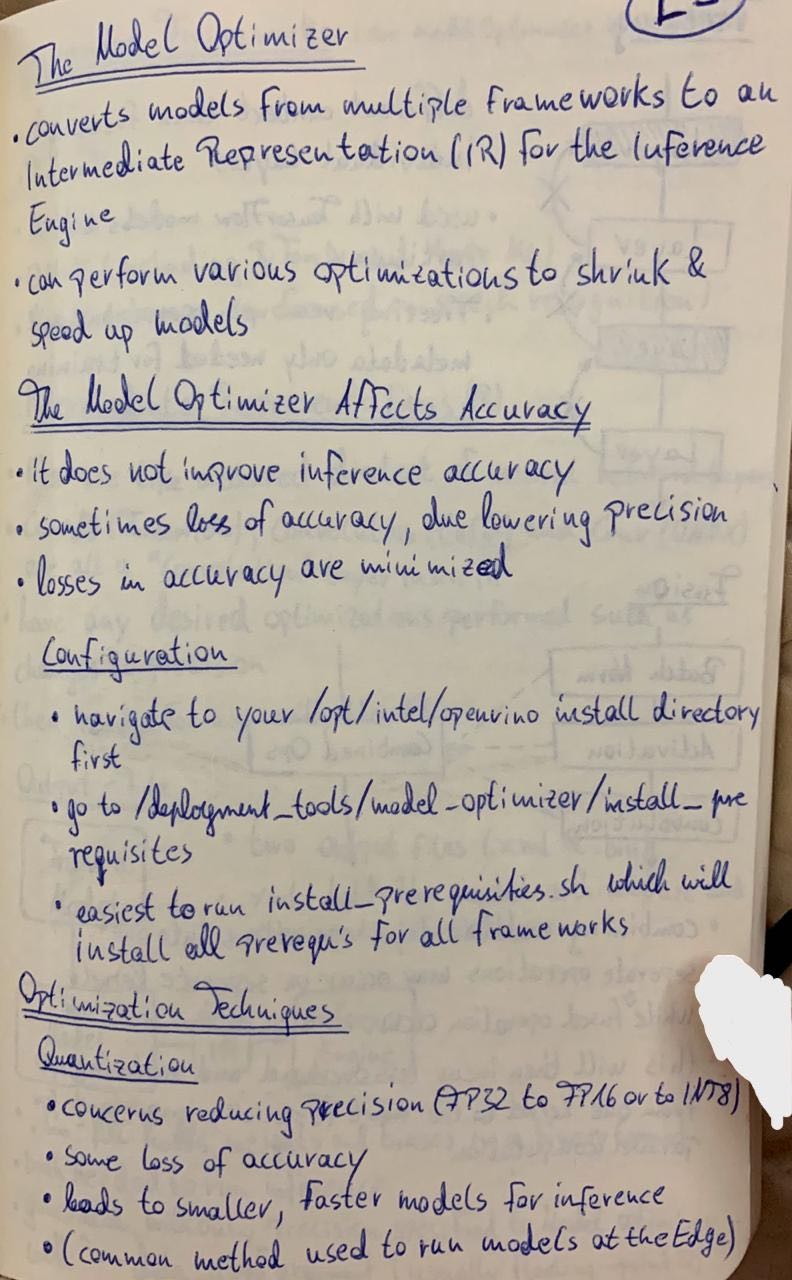 The Model Optimizer
• converts models from multiple frameworks to an
Intermediate Representation (IR) for the Inference
Engine
• can perform various optimizations to shrink &
speed up models
The Model Optimizer Affects Accuracy
• it does not improve inference accuracy
• sometimes loss of accuracy, due lowering precision
• losses in accuracy are minimized
Configuration
• navigate to your /opt/intel/openvino install directory
first
• go to /deployment_tools/model_optimizer/install_pre
requisites
• easiest to run install_prerequisities.sh which will
install all prerequ's for all frameworks
Optimization Techniques
Quantization
• concerns reducing precision (FP32 to FP16 or to INT8)
• some loss of accuracy
• leads to smaller, faster models for inference
• (common method used to run models at the Edge)